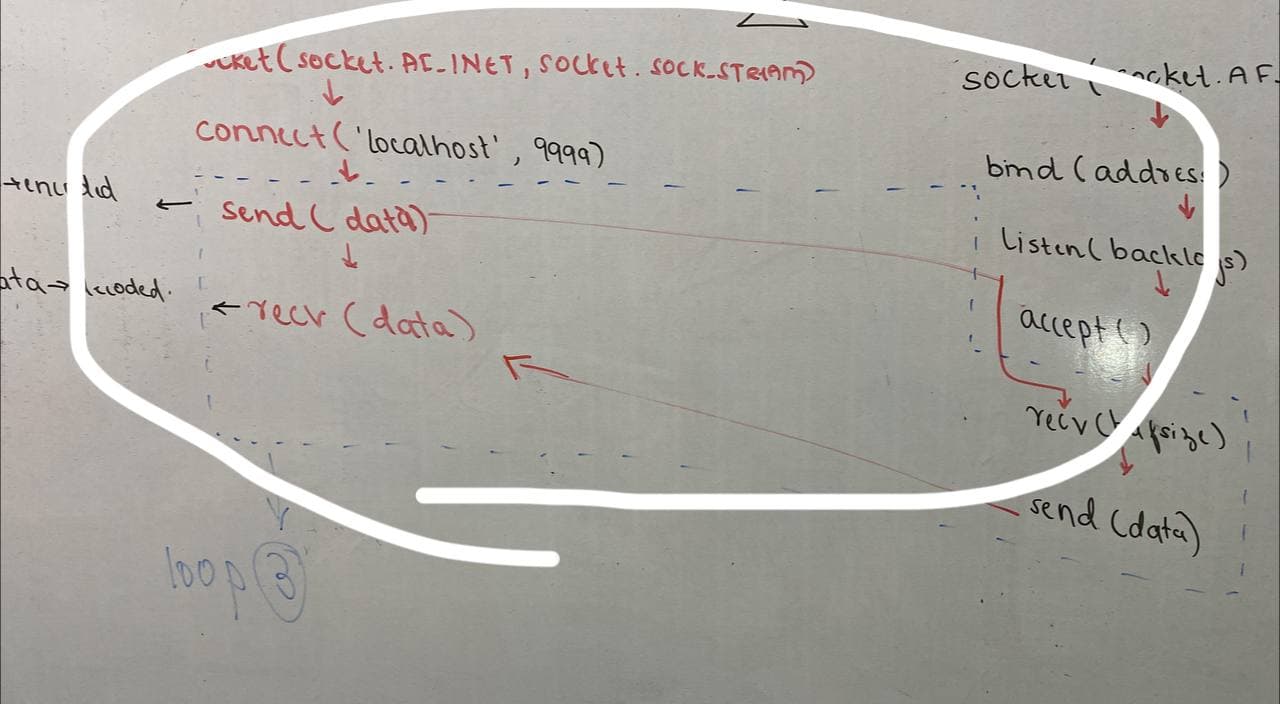 socket(socket.AF_INET, socket.SOCK_STREAM)
connect('localhost', 9999)
→encoded ← send(data)
ata→decoded. ← recv (data)
loop 3
socket(socket.AF_
bind (address)
listen(backlogs)
accept()
recv(bufsize)
send (data)